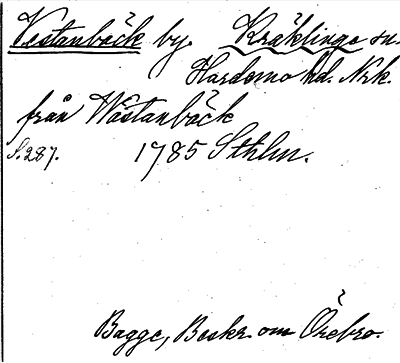 Västanbäck by. Kräklinge sn.
Hardemo hd. Nrk.
från Wästanbäck
S. 287. 1785 Sthlm.
Bagge, Beskr. om Örebro.